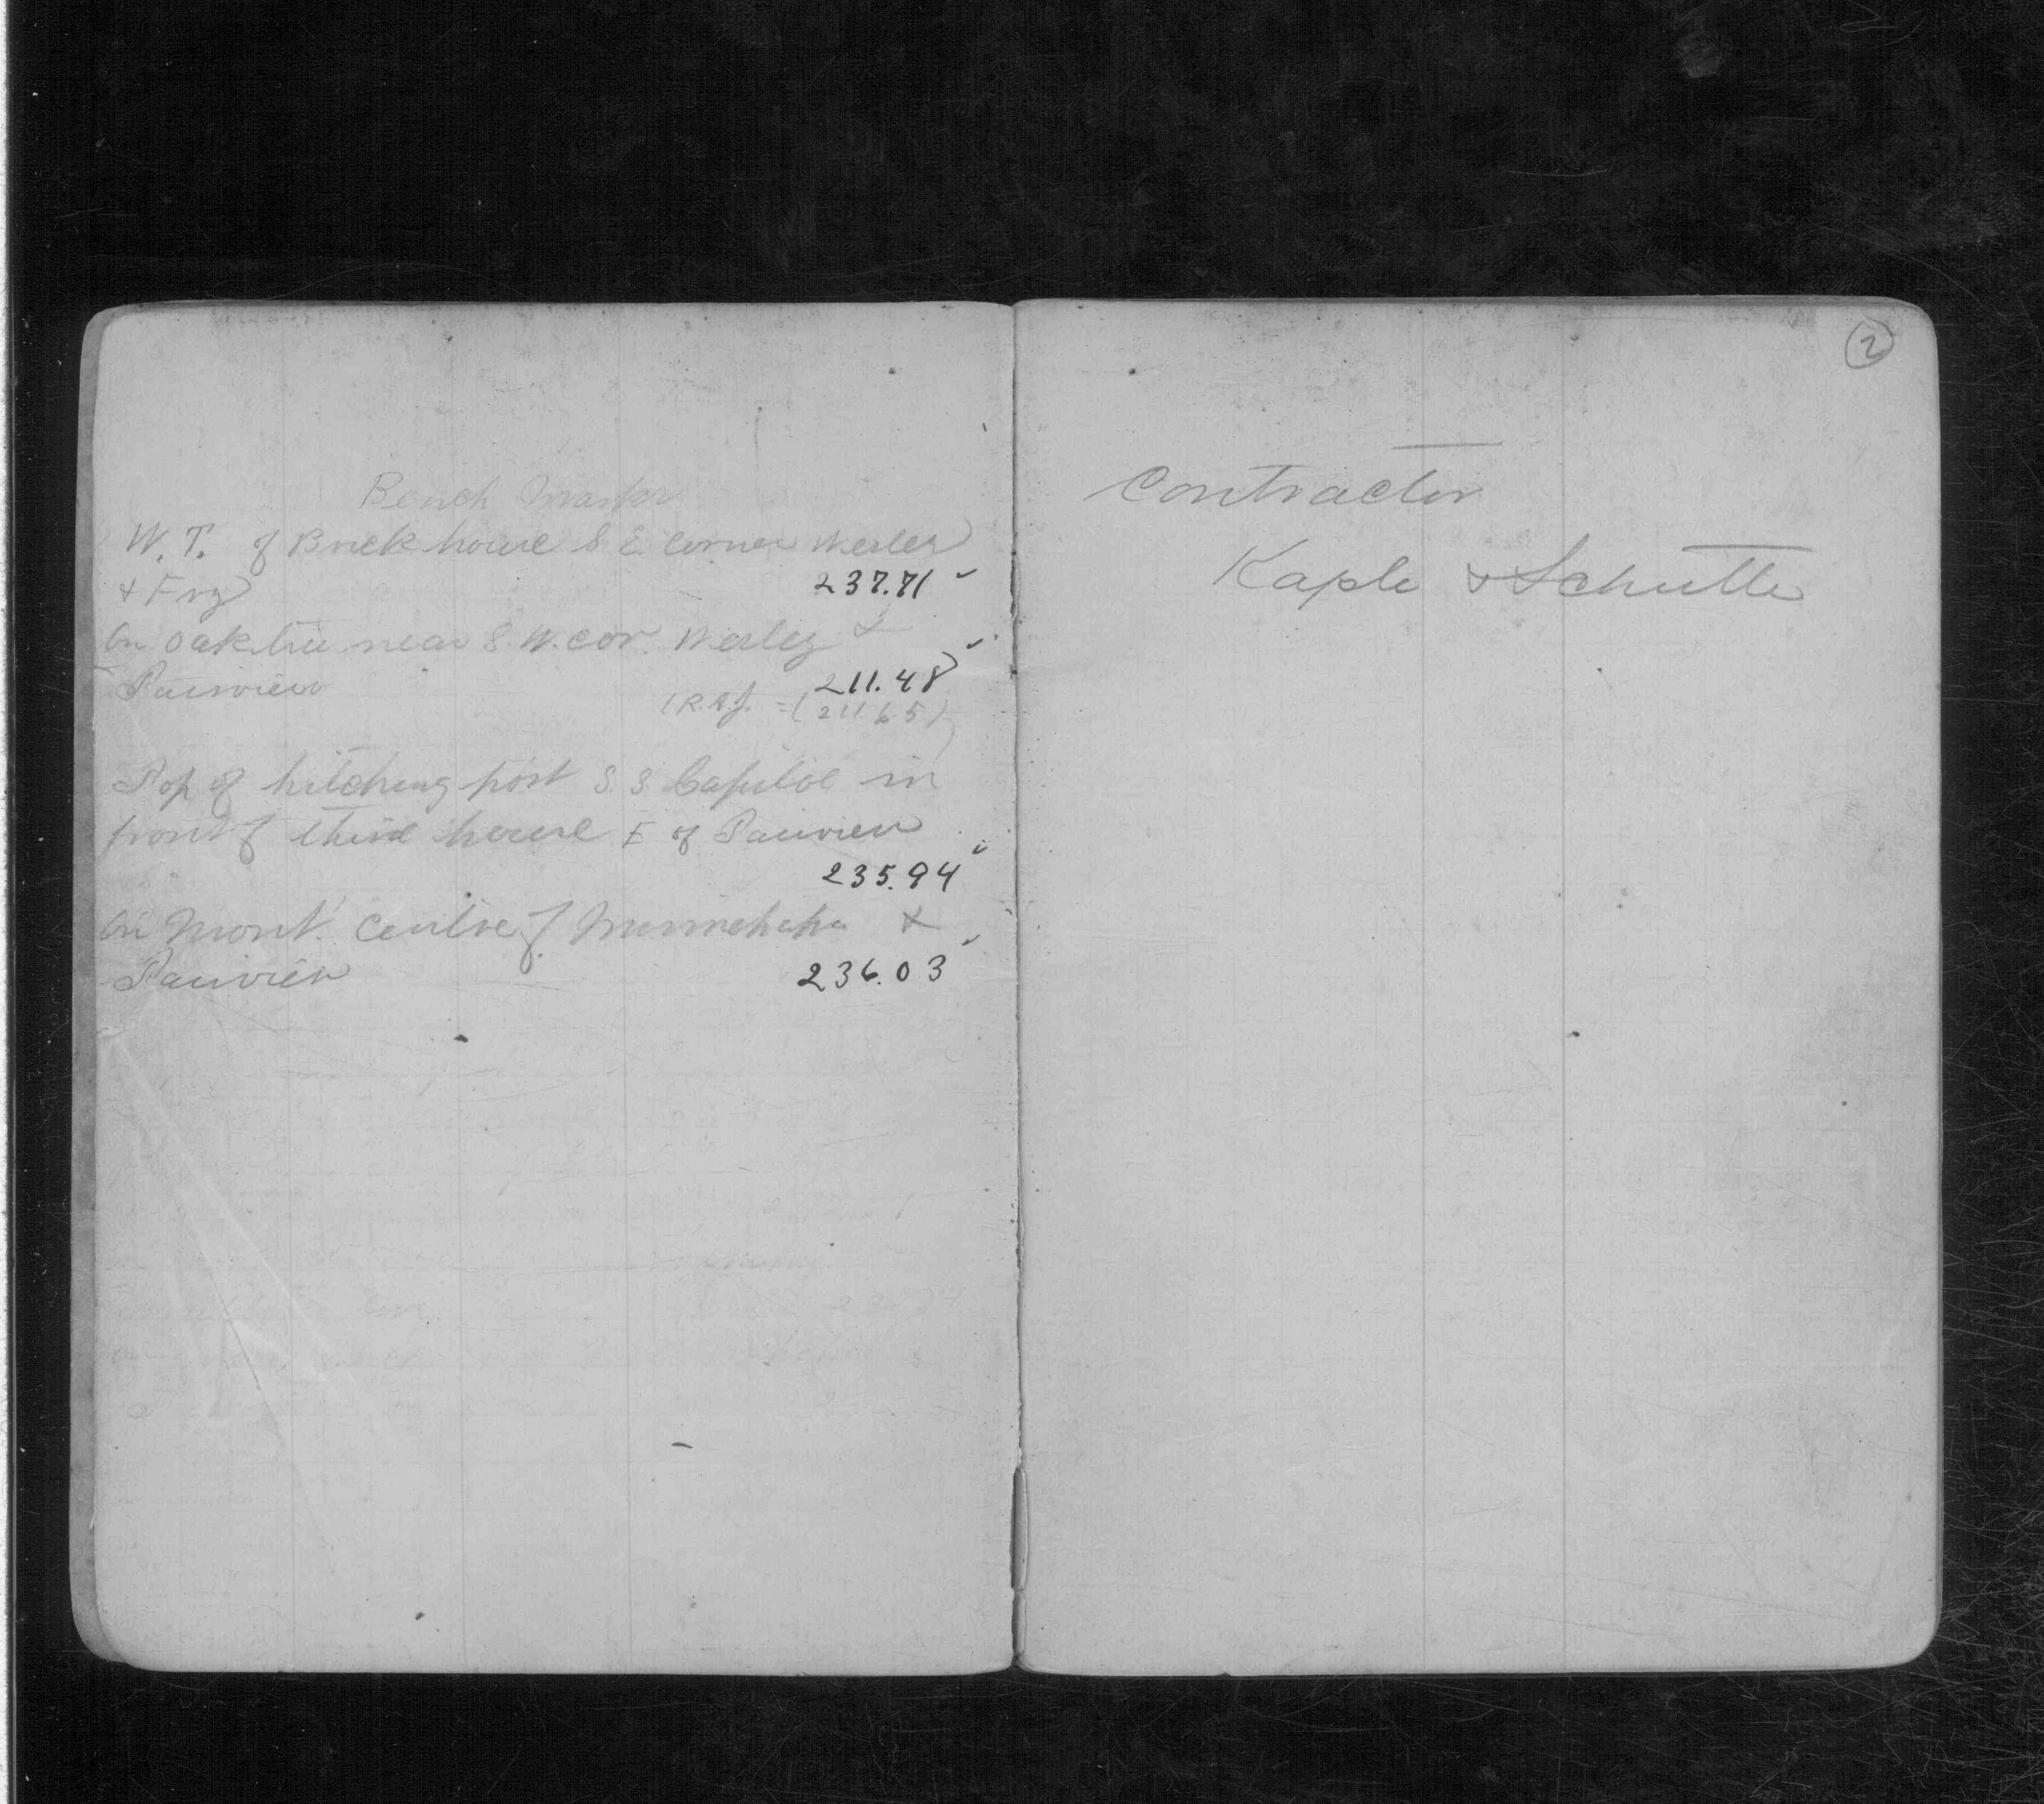 Bench Marks
W. T. of Brick house S E Corner Wesley
+ Fry 237.71 ✓
On oak tree near S. W. cor. Wesley &
Fairview 211.48 ✓
(R.A.J. = (211 65)
Top of hitching post S. S Capitol in
front of third house E of Fairview
235.94 ✓
On Mont. Centre of Minnehaha &
Fairview 236.03 ✓
2
Contractor
Kaple & Schutte